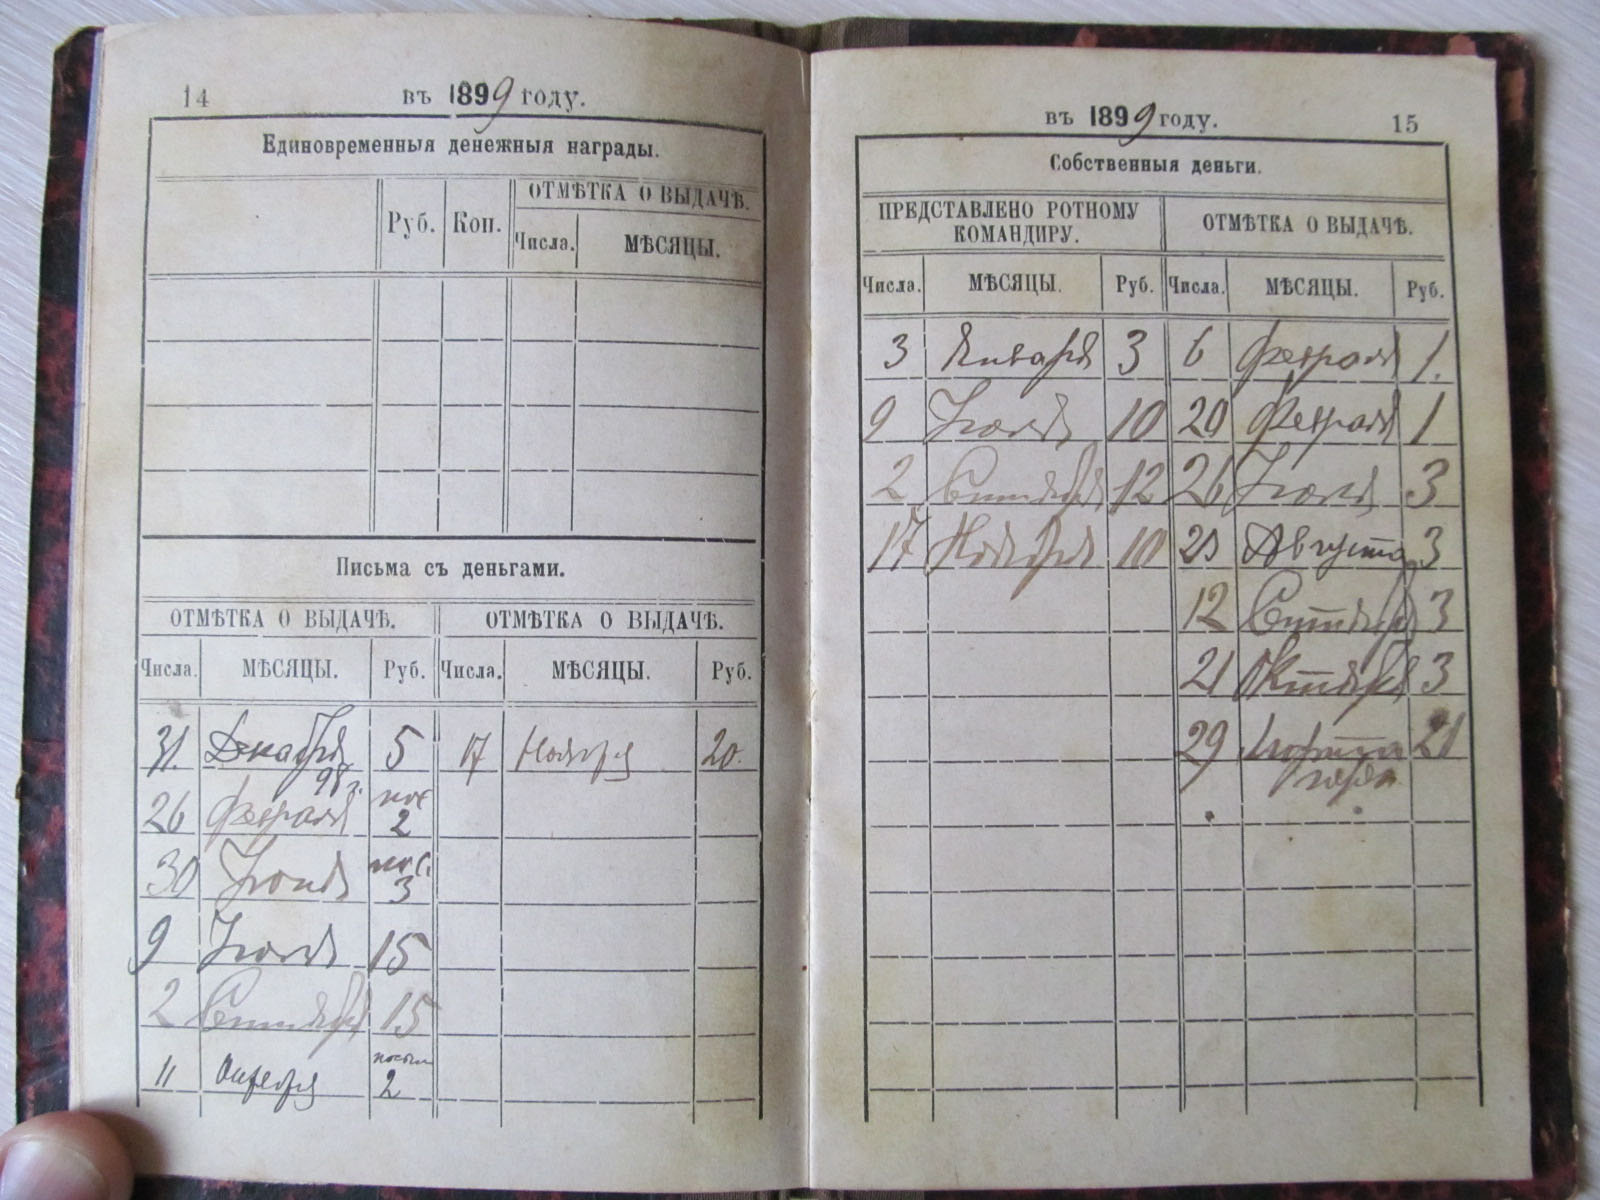 14
въ 1899 году.
Единовременныя денежныя награды.
Руб. Коп. ОТМѢТКА О ВЫДАЧѢ.
Числа. МѢСЯЦЫ.
Письма съ деньгами.
ОТМѢТКА О ВЫДАЧѢ. ОТМѢТКА О ВЫДАЧѢ.
Числа. МѢСЯЦЫ. Руб. Числа. МѢСЯЦЫ. Руб.
31. Декабря 5 17 Ноября 20.
98 г.
26 Февраля 2
30 3
9 Іюля 15
2 Сентября 15
11 2
въ 1899 году.
15
Собственныя деньги.
ПРЕДСТАВЛЕНО РОТНОМУ КОМАНДИРУ. ОТМѢТКА О ВЫДАЧѢ.
Числа. МѢСЯЦЫ. Руб. Числа. МѢСЯЦЫ. Руб.
3 Января 3 6 Февраля 1.
9 Іюля 10 20 Февраля 1
2 Сентября 12 26 Іюля 3
17 Ноября 10 Августа 3
12 Сентября 3
21 Октября 3
29 21